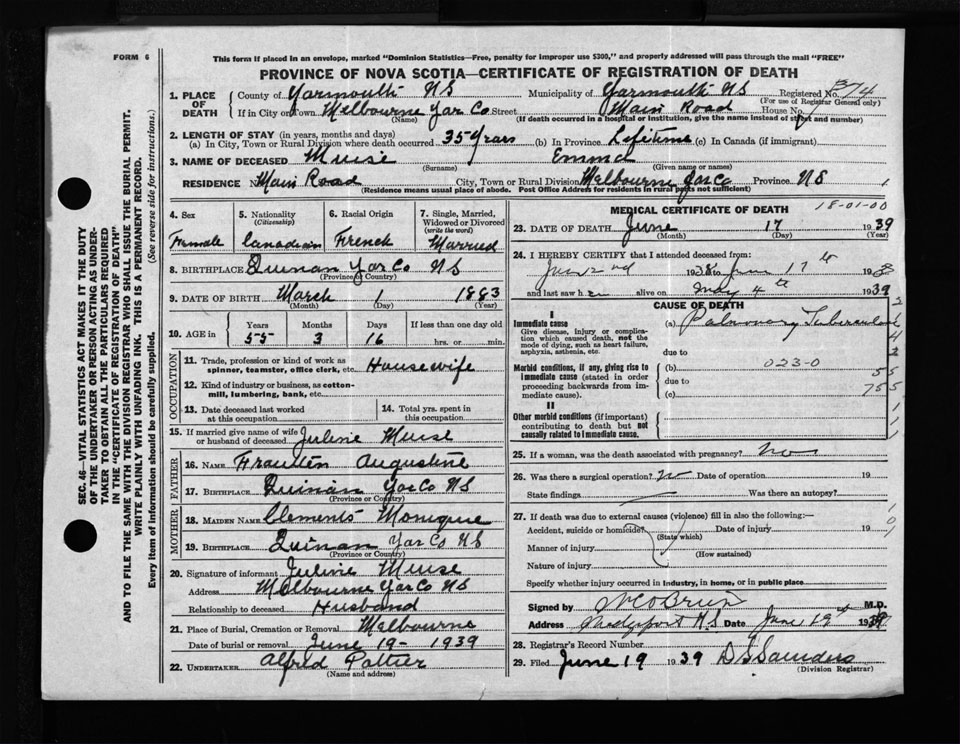 FORM 6
This form if placed in an envelope, marked "Dominion Statistics—Free, penalty for improper use $300," and properly addressed will pass through the mail "FREE"
PROVINCE OF NOVA SCOTIA—CERTIFICATE OF REGISTRATION OF DEATH
1. PLACE OF DEATH County of Yarmouth NS Municipality of Yarmouth NS Registered No. 374
(For use of Registrar General only)
If in City or Town Melbourne Yar Co Street Main Road House No.
(Name) (If death occurred in a hospital or institution, give the name instead of street and number)
2. LENGTH OF STAY (in years, months and days)
(a) In City, Town or Rural Division where death occurred 35 Years (b) In Province Lifetime (c) In Canada (if immigrant)
3. NAME OF DECEASED Muise Emma
(Surname) (Given name or names)
RESIDENCE N Main Road City, Town or Rural Division Melbourne Yar Co Province NS
(Residence means usual place of abode. Post Office Address for residents in rural parts not sufficient)
4. Sex
Female
5. Nationality
(Citizenship)
Canadian
6. Racial Origin
French
7. Single, Married, Widowed or Divorced
(write the word)
Married
8. BIRTHPLACE Quinan Yar Co NS
(Province or Country)
9. DATE OF BIRTH March 1 1883
(Month) (Day) (Year)
10. AGE in
Years Months Days If less than one day old
55 3 16 hrs. or min.
OCCUPATION
11. Trade, profession or kind of work as
spinner, teamster, office clerk, etc. Housewife
12. Kind of industry or business, as cotton-
mill, lumbering, bank, etc.
13. Date deceased last worked
at this occupation
14. Total yrs. spent in
this occupation
15. If married give name of wife
or husband of deceased Julene Muise
FATHER
16. NAME Frautten Augustine
17. BIRTHPLACE Quinan Yar Co NS
(Province or Country)
MOTHER
18. MAIDEN NAME Clements Monique
19. BIRTHPLACE Quinan Yar Co NS
(Province or Country)
20. Signature of informant Julene Muise
Address Melbourne Yar Co NS
Relationship to deceased Husband
21. Place of Burial, Cremation or Removal Melbourne
Date of burial or removal June 19 - 1939
22. UNDERTAKER Alfred Pottier
(Name and address)
18-01-00
MEDICAL CERTIFICATE OF DEATH
23. DATE OF DEATH June 17 1939
(Month) (Day) (Year)
24. I HEREBY CERTIFY that I attended deceased from:
2nd 1938 to June 17th 193
and last saw her alive on May 4th 1939
CAUSE OF DEATH
I
Immediate cause
Give disease, injury or complication which caused death, not the mode of dying, such as heart failure, asphyxia, asthenia, etc.
(a) Pulmonary Tuberculosis
due to
Morbid conditions, if any, giving rise to immediate cause (stated in order proceeding backwards from immediate cause).
(b) 023-0
due to
(c)
II
Other morbid conditions (if important) contributing to death but not causally related to immediate cause.
25. If a woman, was the death associated with pregnancy? No
26. Was there a surgical operation? No Date of operation 19
State findings Was there an autopsy?
27. If death was due to external causes (violence) fill in also the following:—
Accident, suicide or homicide? Date of injury 19
(State which)
Manner of injury
(How sustained)
Nature of injury
Specify whether injury occurred in industry, in home, or in public place
Signed by M.D.
Address Wedgeport N.S Date June 19th 1939
28. Registrar's Record Number
29. Filed June 19 1939 D S Saunders
(Division Registrar)
SEC. 46—VITAL STATISTICS ACT MAKES IT THE DUTY
OF THE UNDERTAKER OR PERSON ACTING AS UNDER-
TAKER TO OBTAIN ALL THE PARTICULARS REQUIRED
IN THE "CERTIFICATE OF REGISTRATION OF DEATH"
AND TO FILE THE SAME WITH THE DIVISION REGISTRAR WHO SHALL ISSUE THE BURIAL PERMIT.
WRITE PLAINLY WITH UNFADING INK. THIS IS A PERMANENT RECORD.
Every item of information should be carefully supplied. (See reverse side for instructions.)